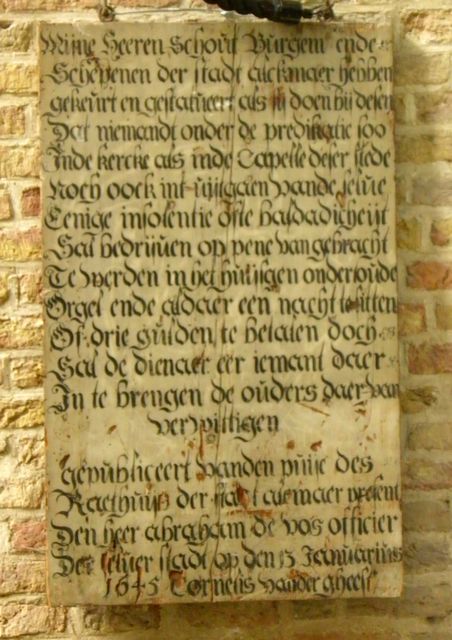 Mijne Heeren Schout Burgem ende
Schepenen der stadt alckmaer hebben
gekeurt en gestatueert als sij doen bij desen
Dat niemandt onder de predikatie soo
Inde kercke als inde Capelle deser stede
Noch oock int uijtgaen vande selue
Eenige insolentie ofte baldadicheijt
Sal bedrijuen op pene van gebracht
Te werden in het huijsgen onder oude
Orgel ende aldaer een nacht te sitten
Of drie gulden te betalen doch
Sal de dienaer eer iemant daer
In te brengen de ouders daer van
verwittigen
gepubliceert vanden puije des
Raethuijs der stadt alcmaer present
Den heer abraham de vos officier
Der seluer stadt op den 13 Januarius
1645 Cornelis vander gheest